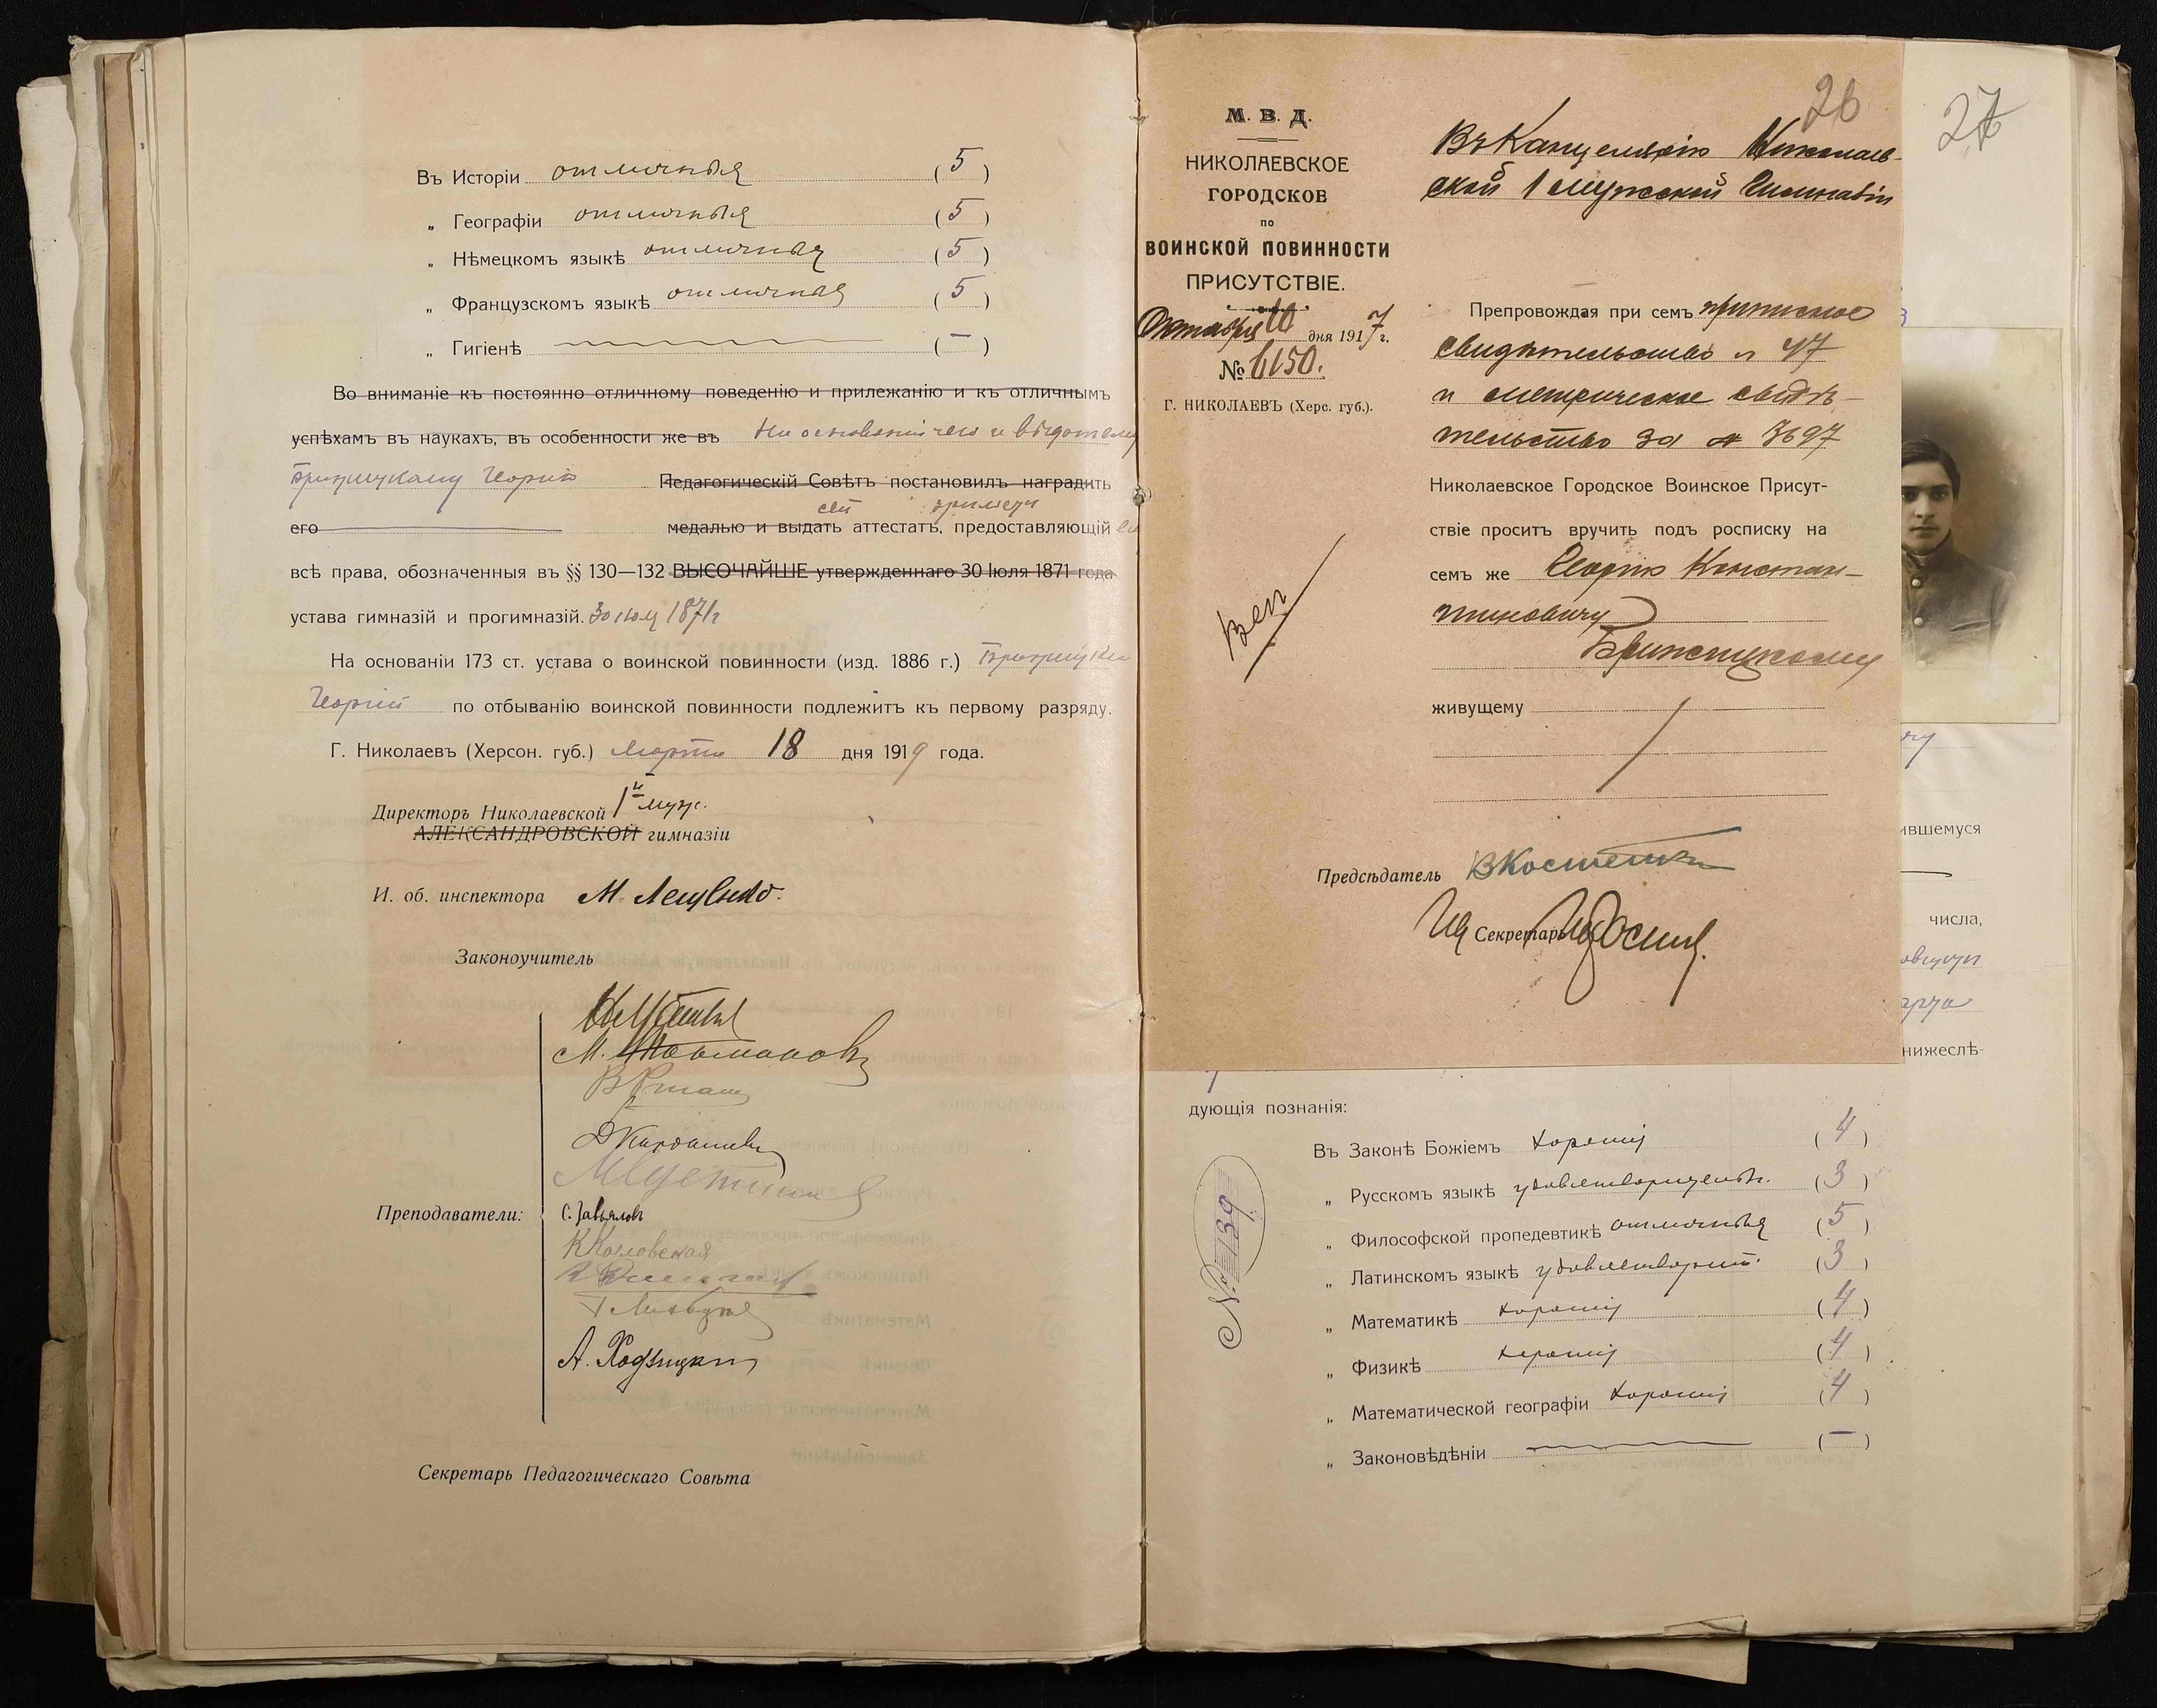 Въ Исторіи отличныя (5)
„ Географіи отличныя (5)
„ Нѣмецкомъ языкѣ отличныя (5)
„ Французскомъ языкѣ отличныя (5)
„ Гигіенѣ (—)
Во вниманіе къ постоянно отличному поведенію и прилежанію и къ отличнымъ
успѣхамъ въ наукахъ, въ особенности же въ На основаніи чего и выдать ему
Брижицкому Георгію Педагогическій Совѣтъ постановилъ наградить
сей
его медалью и выдать аттестатъ, предоставляющій
всѣ права, обозначенныя въ §§ 130—132 ВЫСОЧАЙШЕ утвержденнаго 30 Іюля 1871 года
устава гимназій и прогимназій. 30 іюля 1871 г
На основаніи 173 ст. устава о воинской повинности (изд. 1886 г.)
Георгій по отбыванію воинской повинности подлежитъ къ первому разряду.
Г. Николаевъ (Херсон. губ.) Марта 18 дня 1919 года.
Директоръ Николаевской 1й муж.
АЛЕКСАНДРОВСКОЙ гимназіи
И. об. инспектора М. Лещенко.
Законоучитель
Преподаватели: С. Завьяловъ
К Козловская
А. Ходзицкій
Секретарь Педагогическаго Совѣта
26
27
М. В. Д.
НИКОЛАЕВСКОЕ
ГОРОДСКОЕ
ПО
ВОИНСКОЙ ПОВИННОСТИ
ПРИСУТСТВІЕ.
Октября 10 дня 1917 г.
№ 6150.
Г. НИКОЛАЕВЪ (Херс. губ.).
Въ Канцелярію Николаев-
ской 1 мужской Гимназіи
Препровождая при семъ приписное
свидѣтельство № 47
и метрическое свидѣ-
тельство за № 3697
Николаевское Городское Воинское Присут-
ствіе проситъ вручить подъ росписку на
семъ же Георгію Констан-
тиновичу
Брижицкому
живущему
Предсѣдатель
Секретарь
ившемуся
числа,
нижеслѣ-
дующія познанія:
№ 139
Въ Законѣ Божіемъ хорошія (4)
„ Русскомъ языкѣ удовлетворительн. (3)
„ Философской пропедевтикѣ отличныя (5)
„ Латинскомъ языкѣ удовлетворит. (3)
„ Математикѣ хорошія (4)
„ Физикѣ хорошія (4)
„ Математической географіи хорошія (4)
„ Законовѣдѣніи (—)